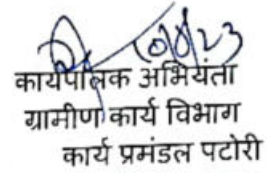 कार्यपालक अभियंता
ग्रामीण कार्य विभाग
कार्य प्रमंडल पटोरी